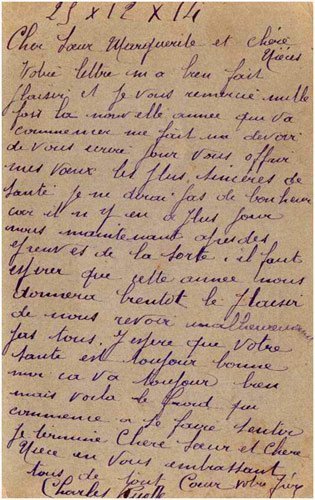 25 x 12 x 14
Cher Sœur Marguerite et chère
Nièces
Votre lettre m a bien fait
plaisir et je vous remercie mille
fois la nouvelle année que va
commencer me fait un devoir
de vous écrire pour vous offrir
mes vœux les plus sincères de
santé je ne dirai pas de bonheur
car il n y en a plus pour
nous maintenant après des
épreuves de la sorte ; il faut
espérer que cette année nous
donnera bientot le plaisir
de nous revoir malheureusement
pas tous. J espère que votre
santé est toujour bonne
moi ca va toujour bien
mais voila le froid qui
commence a se faire sentir
Je termine Chère Sœur et Chère
Nièce en vous embrassant
tous de tout Cœur votre frère
Charles